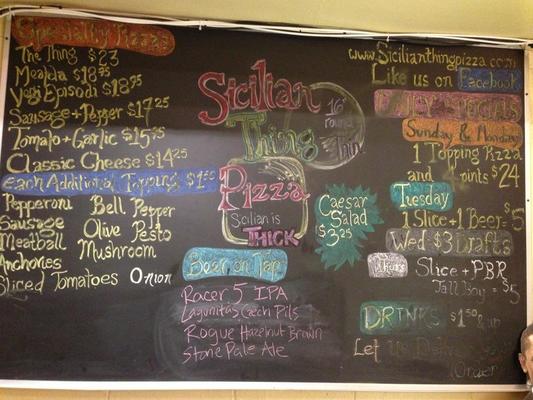 Specialty Pizzas
The Thing $23
Meajda $18.95
Vegi Episodi $18.95
Sausage + Pepper $17.25
Tomato + Garlic $15.95
Classic Cheese $14.25
Each Additional Topping $1.50
Pepperoni Bell Pepper
Sausage Olive Pesto
Meatball Mushroom
Anchovies
Sliced Tomatoes Onion
Sicilian
Thing
Pizza
16"
round
Thin
Sicilian is
THICK
Caesar
Salad
$3.25
Beer on Tap
Racer 5 IPA
Lagunitas Czech Pils
Rogue Hazelnut Brown
Stone Pale Ale
www.Sicilianthingpizza.com
Like us on Facebook
DAILY SPECIALS
Sunday & Monday
1 Topping Pizza
and pints $24
Tuesday
1 Slice + 1 Beer - $5
Wed $3 Drafts
Thurs Slice + PBR
Tall Boy = $5
DRINKS $1.50 & up
Let Us
Order